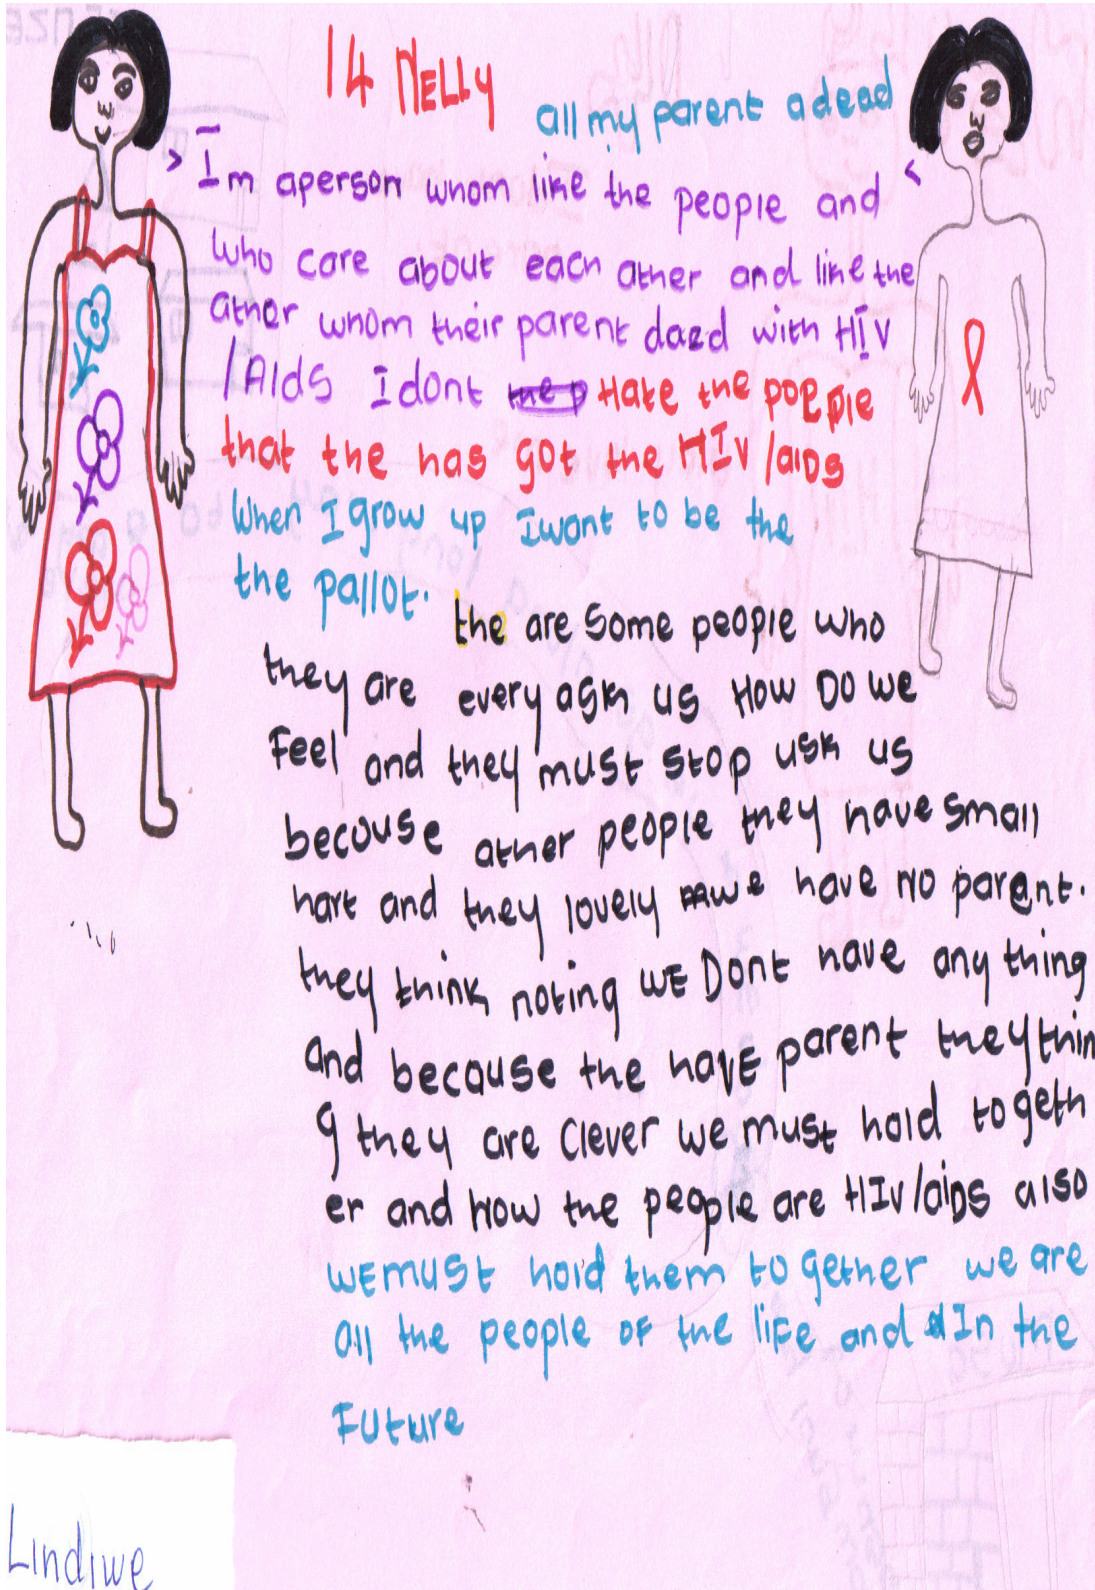 14 NELLY
all my parent a dead
I'm aperson whom like the people and
who care about each ather and like the
ather whom their parent daed with HIV
/AIds I dont Hate the poeple
that the has got the HIV/aIDS
When I grow up I want to be the
the pallot.
the are some people who
they are every ask us How Do we
Feel and they must stop usk us
becouse ather people they have small
hart and they lovely we have no parent.
they think noting WE Dont have any thing
and because the havE parent they thin
g they are Clever we must hold togeth
er and how the people are HIV/aiDs also
wE must hold them to gether we are
all the people of the life and In the
Future
Lindiwe